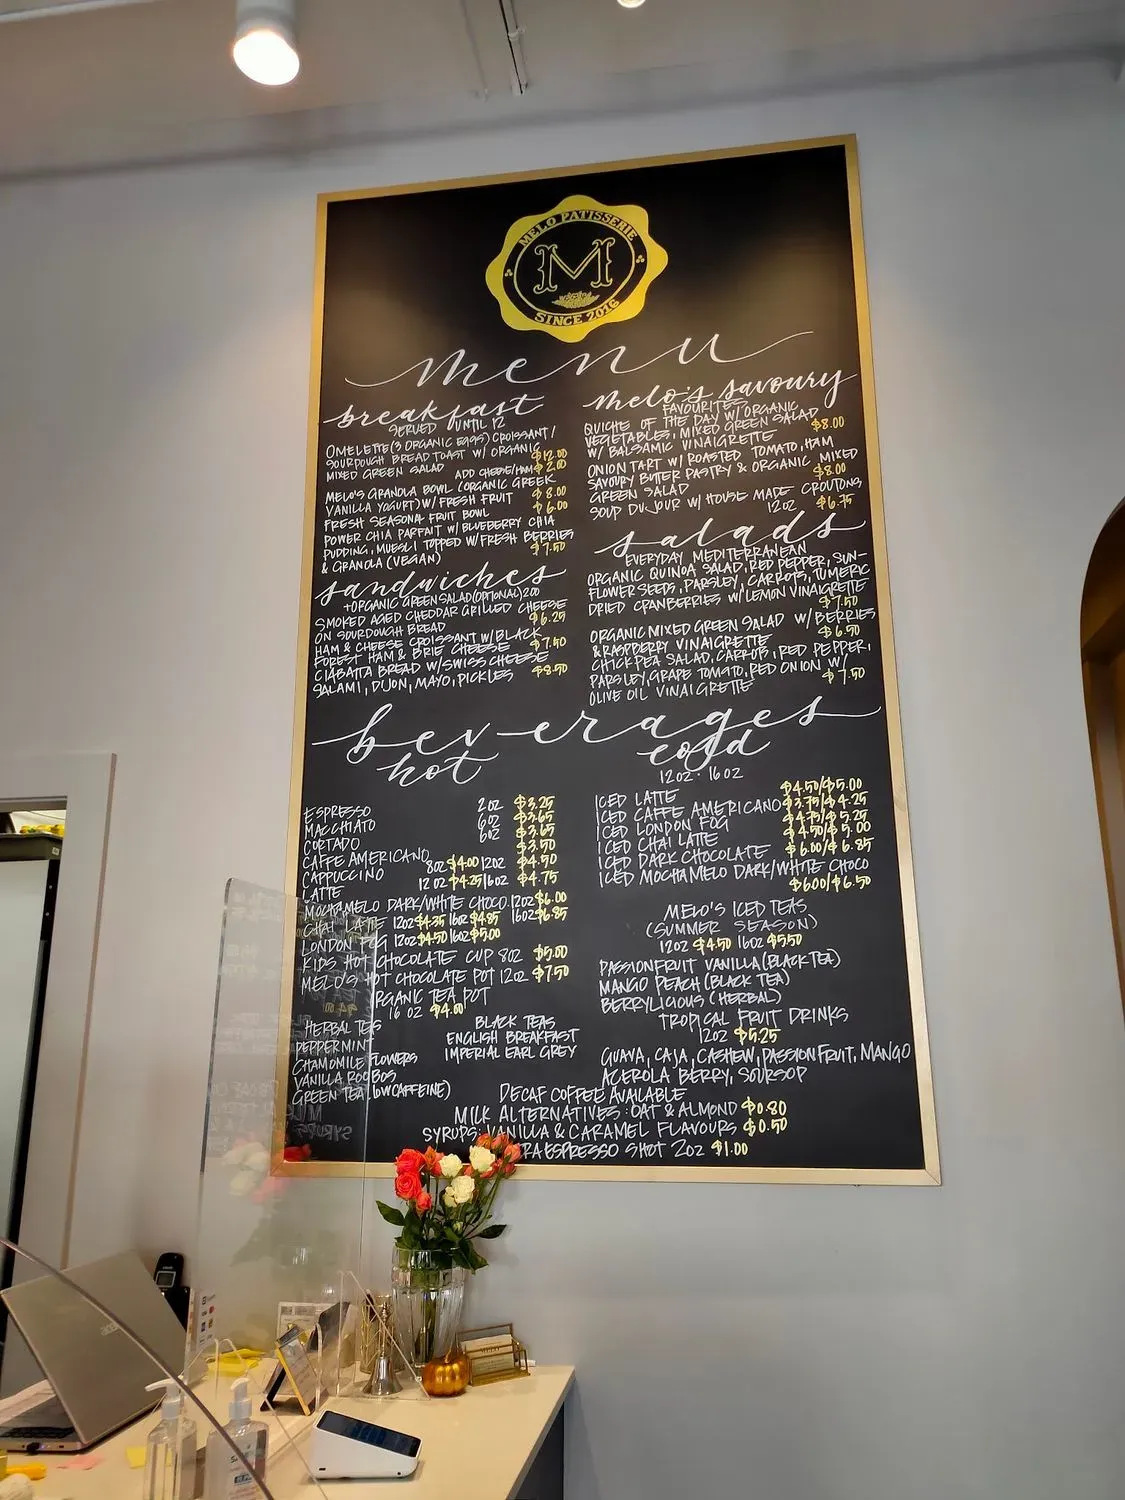 MELO PATISSERIE
M
SINCE 2016
menu
breakfast
SERVED UNTIL 12
OMELETTE (3 ORGANIC EGGS) CROISSANT /
SOURDOUGH BREAD TOAST W/ ORGANIC
MIXED GREEN SALAD $12.00
ADD CHEESE/HAM $2.00
MELO'S GRANOLA BOWL (ORGANIC GREEK
VANILLA YOGURT) W/ FRESH FRUIT $8.00
FRESH SEASONA FRUIT BOWL $6.00
POWER CHIA PARFAIT W/ BLUEBERRY CHIA
PUDDING, MUESLI TOPPED W/ FRESH BERRIES
& GRANOLA (VEGAN) $7.50
sandwiches
+ORGANIC GREEN SALAD (OPTIONAL) 2.00
SMOKED AGED CHEDDAR GRILLED CHEESE
ON SOURDOUGH BREAD $6.25
HAM & CHEESE CROISSANT W/ BLACK
FOREST HAM & BRIE CHEESE $7.50
CIABATTA BREAD W/ SWISS CHEESE
SALAMI, DIJON, MAYO, PICKLES $8.50
melo's savoury
FAVOURITES
QUICHE OF THE DAY W/ ORGANIC
VEGETABLES, MIXED GREEN SALAD
W/ BALSAMIC VINAIGRETTE $8.00
ONION TART W/ ROASTED TOMATO, HAM
SAVOURY BUTTER PASTRY & ORGANIC MIXED
GREEN SALAD $8.00
SOUP DU JOUR W/ HOUSE MADE CROUTONS
12OZ $6.75
salads
EVERYDAY MEDITERRANEAN
ORGANIC QUINOA SALAD, RED PEPPER, SUN-
FLOWER SEEDS, PARSLEY, CARROTS, TUMERIC
DRIED CRANBERRIES W/ LEMON VINAIGRETTE
$7.50
ORGANIC MIXED GREEN SALAD W/ BERRIES
& RASPBERRY VINAIGRETTE $6.50
CHICKPEA SALAD, CARROTS, RED PEPPER,
PARSLEY, GRAPE TOMATO, RED ONION W/
OLIVE OIL VINAIGRETTE $7.50
beverages
hot
ESPRESSO 2OZ $3.25
MACCHIATO 6OZ $3.65
CORTADO 6OZ $3.65
CAFFE AMERICANO $3.50
CAPPUCCINO 8OZ $4.00 12OZ $4.50
LATTE 12OZ $4.25 16OZ $4.75
MOCHAMELO DARK/WHITE CHOCO 12OZ $6.00
16OZ $6.85
CHAI LATTE 12OZ $4.35 16OZ $4.85
LONDON FOG 12OZ $4.50 16OZ $5.00
KIDS HOT CHOCOLATE CUP 8OZ $5.00
MELO'S HOT CHOCOLATE POT 12OZ $7.50
ORGANIC TEA POT
16 OZ $4.00
HERBAL TEAS
PEPPERMINT
CHAMOMILE FLOWERS
VANILLA ROOIBOS
GREEN TEA (LOW CAFFEINE)
BLACK TEAS
ENGLISH BREAKFAST
IMPERIAL EARL GREY
cold
12OZ · 16OZ
ICED LATTE $4.50/$5.00
ICED CAFFE AMERICANO $3.75/$4.25
ICED LONDON FOG $4.75/$5.25
ICED CHAI LATTE $4.50/$5.00
ICED DARK CHOCOLATE $6.00/$6.85
ICED MOCHAMELO DARK/WHITE CHOCO
$6.00/$6.50
MELO'S ICED TEAS
(SUMMER SEASON)
12OZ $4.50 16OZ $5.50
PASSIONFRUIT VANILLA (BLACK TEA)
MANGO PEACH (BLACK TEA)
BERRYLICIOUS (HERBAL)
TROPICAL FRUIT DRINKS
12OZ $5.25
GUAVA, CAJA, CASHEW, PASSION FRUIT, MANGO
ACEROLA BERRY, SOURSOP
DECAF COFFEE AVAILABLE
MILK ALTERNATIVES: OAT & ALMOND $0.80
SYRUPS: VANILLA & CARAMEL FLAVOURS $0.50
ESPRESSO SHOT 2OZ $1.00
acer